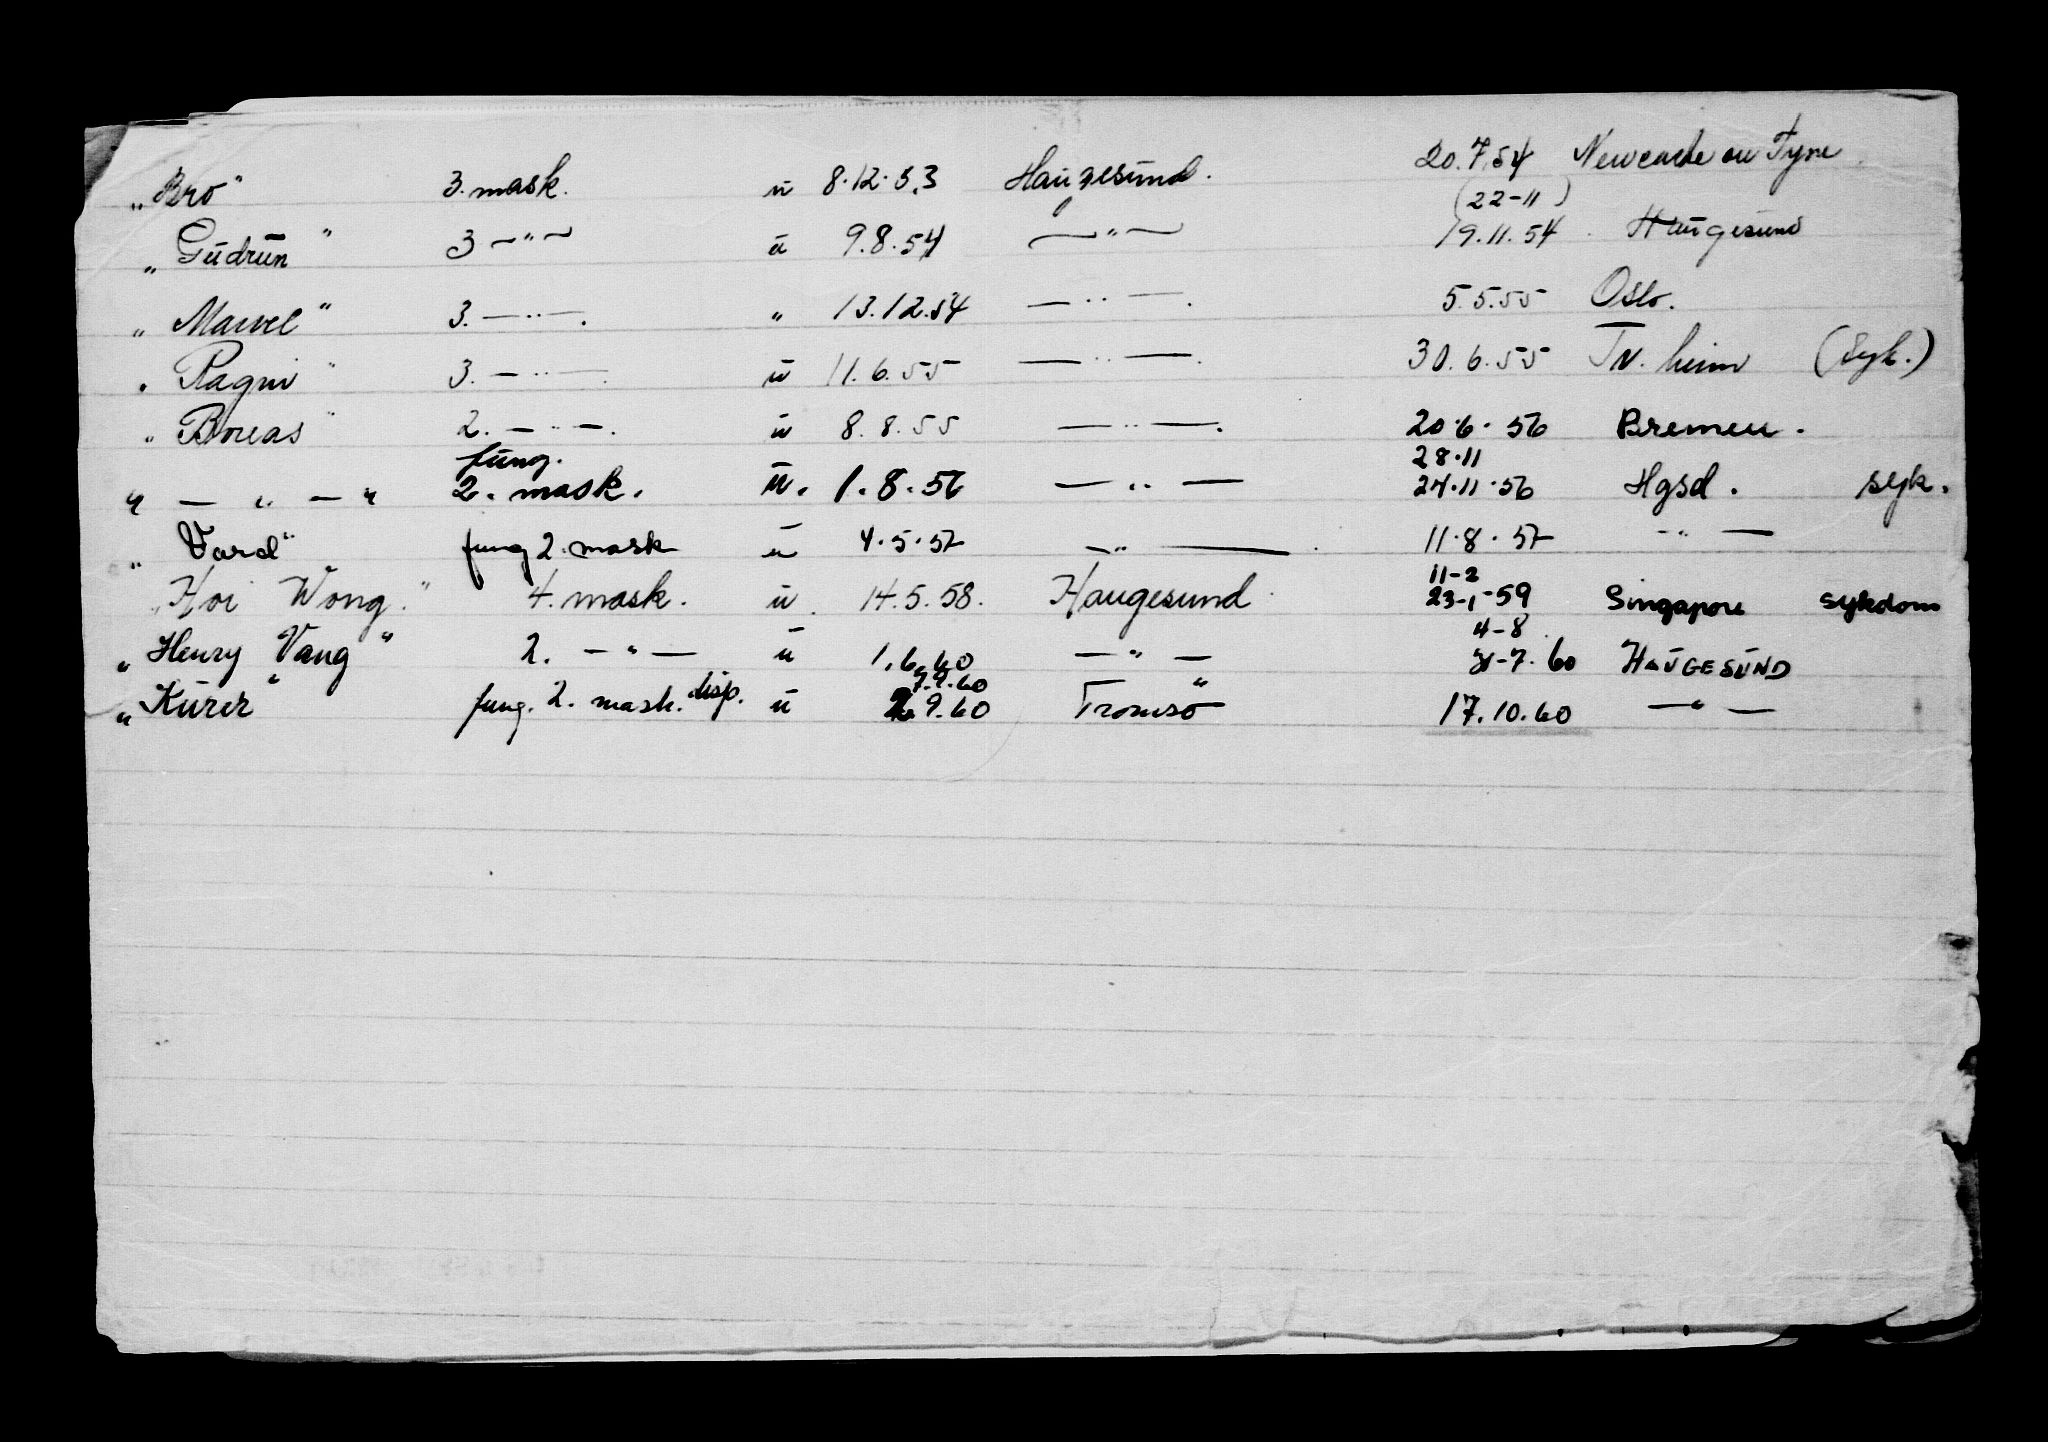 „Bro" 3. mask. u 8.12.53 Haugesund. 20.7.54 Newcastle on Tyne
(22-11)
„Gudrun" 3 —"— u 9.8.54 —"— 19.11.54 Haugesund
„Marvel" 3. —"—. " 13.12.54 —"—. 5.5.55 Oslo.
„Ragni" 3. —"—. u 11.6.55 —"—. 30.6.55 Tr.heim (syk.)
„Boreas" 2. —"—. u 8.8.55 —"—. 20.6.56 Bremen.
fung. 28.11
" — " — " 2. mask. u. 1.8.56 — " — 24.11.56 Hgsd. syk.
„Vard" fung 2. mask u 4.5.57 —"— 11.8.57 —"—
11-2
„Hoi Wong." 4. mask. u. 14.5.58. Haugesund 23-1-59 Singapore sykdom
4-8
„Henry Vang" 2. —"— u 1.6.60 —"— 31-7.60 HAUGESUND
7.9.60
„Kurer" fung. 2. mask. disp. u 9.60 Tromsø 17.10.60 —"—